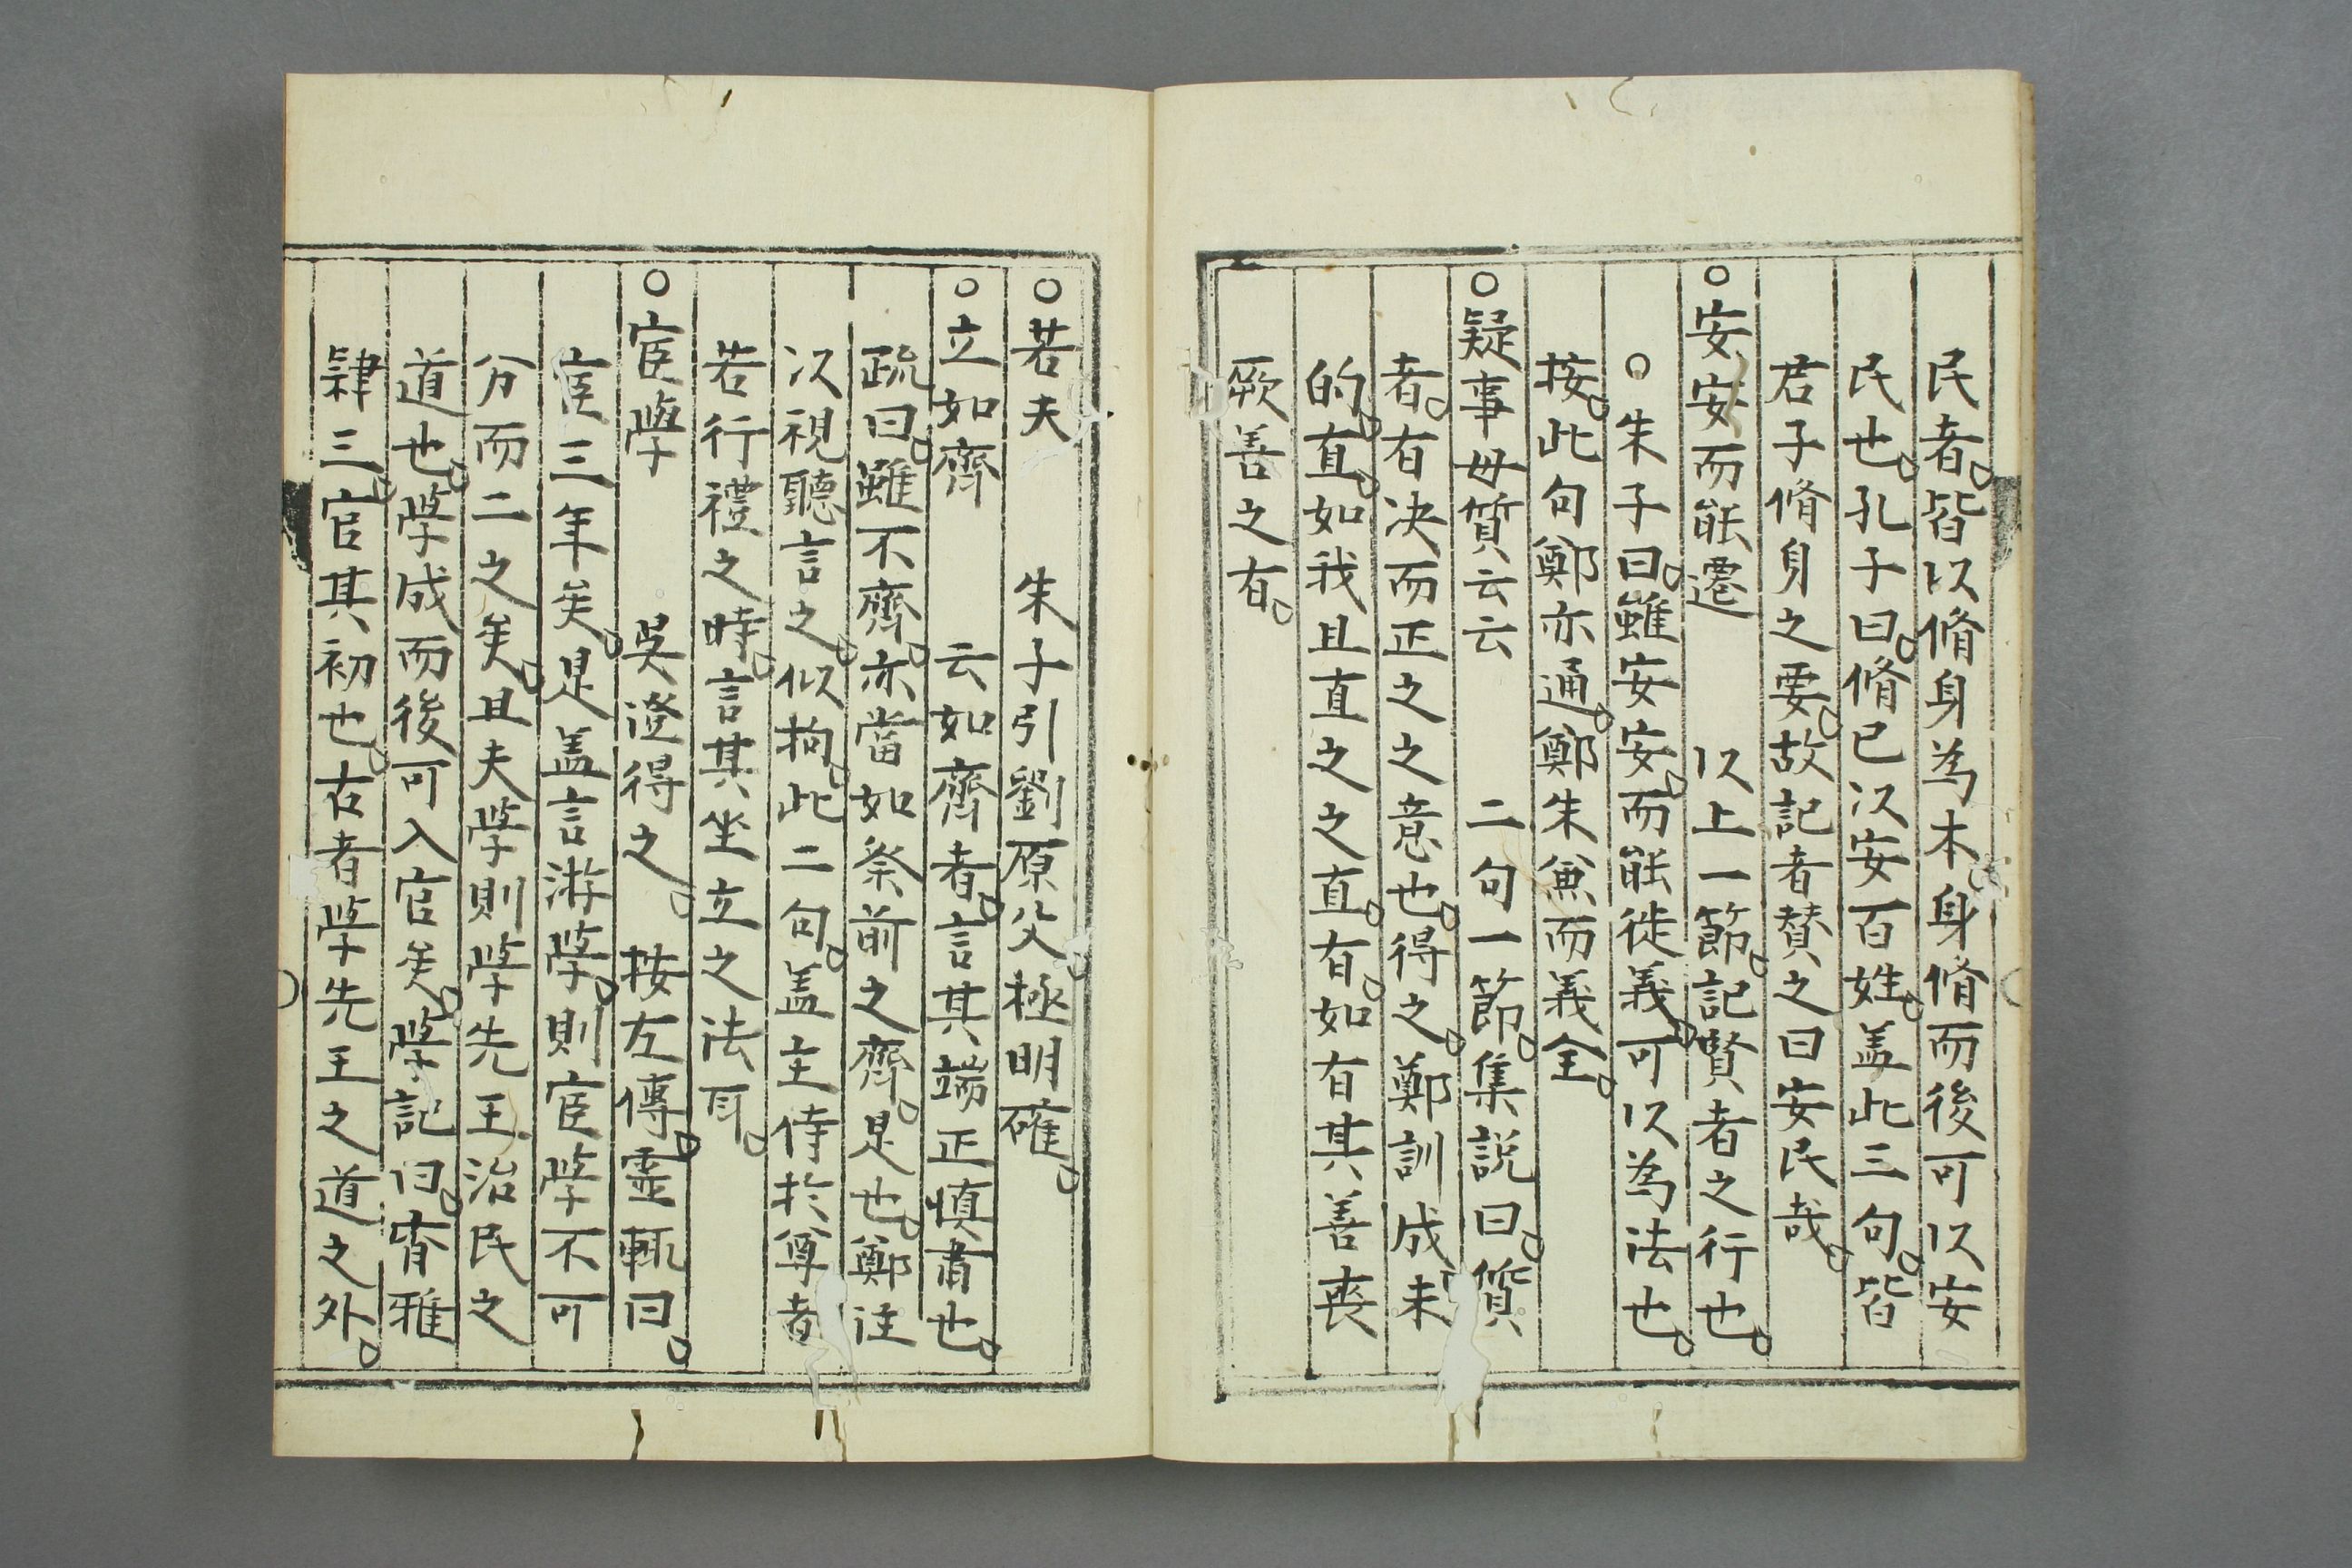 民者。皆以脩身為本身脩而後可以安
民也。孔子曰。脩已以安百姓。盖此三句。皆
君子脩身之要。故記者賛之曰安民哉。
○安安而能遷　以上一節。記賢者之行也。
○朱子曰。雖安安。而能徙義。可以為法也。
按。此句鄭亦通。鄭朱兼而義全。
○疑事毋質云云　二句一節。集説曰。質
者。有决而正之之意也。得之。鄭訓成。未
的。直。如我且直之之直。有。如有其善喪
厥善之有。
○若夫　朱子引劉原父極明確。
○立如齊　云如齊者。言其端正慎肅也。
疏曰。雖不齊。亦當如祭前之齊。是也。鄭註
以視聽言之。似拘。此二句。盖主侍於尊者
若行禮之時。言其坐立之法耳。
○宦學　吳澄得之。　按左傳。靈輒曰。
宦三年矣。是盖言游學。則宦學不可
分而二之矣。且夫學則學先王治民之
道也。學成而後可入官矣。學記曰。宵雅
肄三。官其初也。古者學先王之道之外。